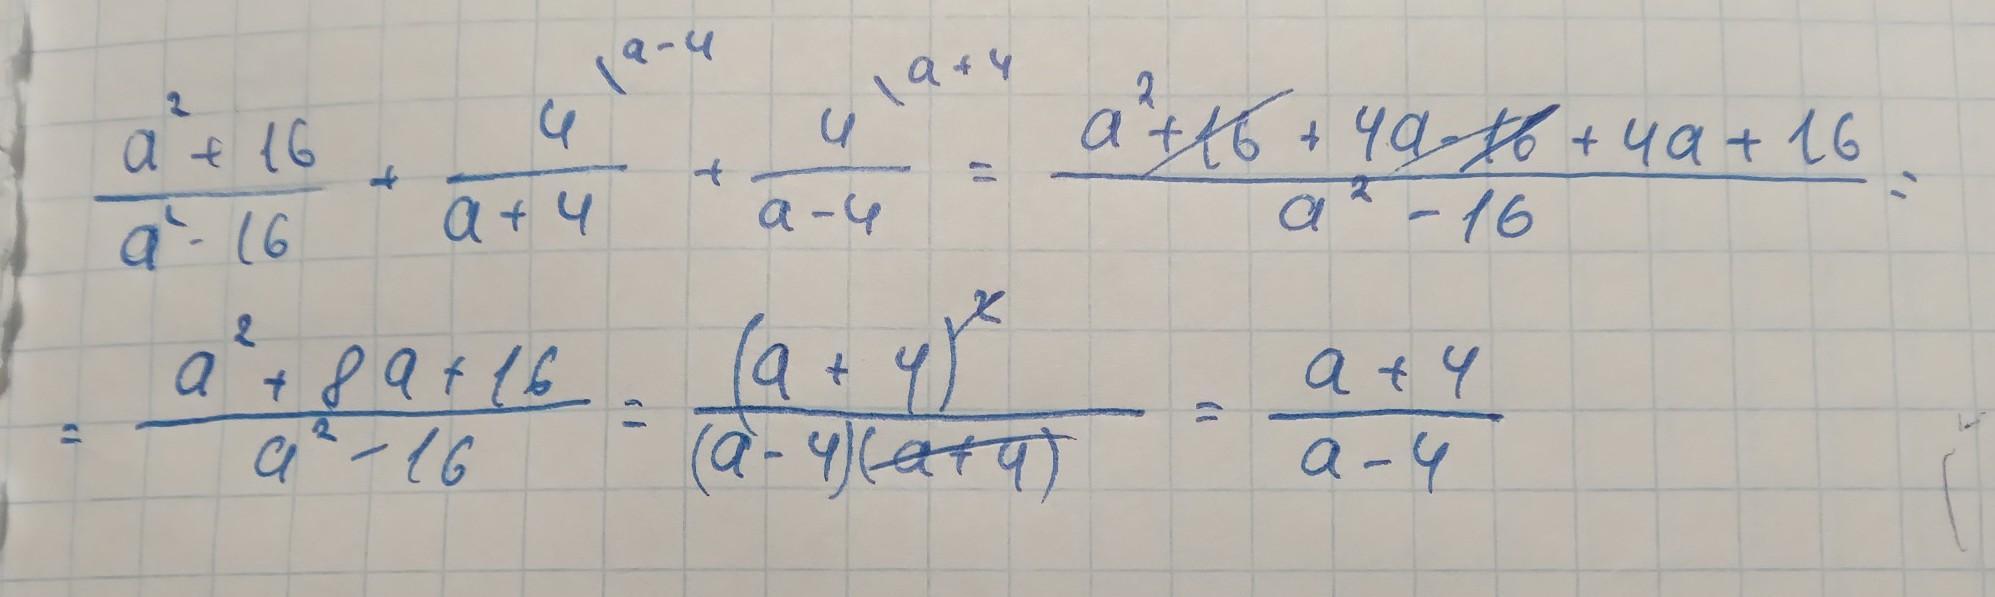 (a² + 16)/(a² - 16) + 4\a-4/(a + 4) + 4\a+4/(a - 4) = (a² + 16 + 4a - 16 + 4a + 16)/(a² - 16) =
= (a² + 8a + 16)/(a² - 16) = (a + 4)²/((a - 4)(a + 4)) = (a + 4)/(a - 4)